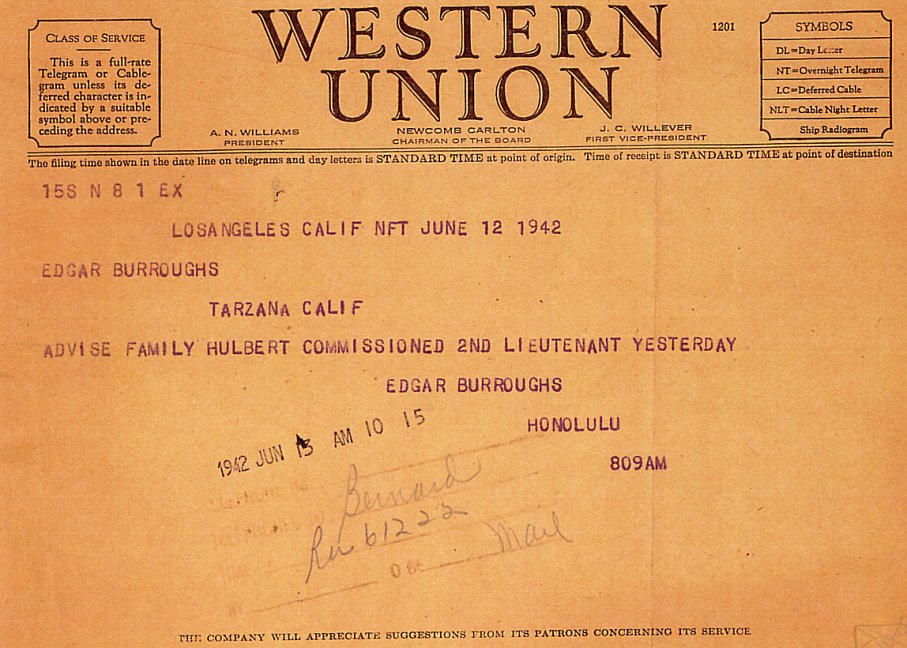 CLASS OF SERVICE
This is a full-rate
Telegram or Cable-
gram unless its de-
ferred character is in-
dicated by a suitable
symbol above or pre-
ceding the address.
WESTERN
UNION
1201
SYMBOLS
DL=Day Letter
NT=Overnight Telegram
LC=Deferred Cable
NLT=Cable Night Letter
Ship Radiogram
A. N. WILLIAMS
PRESIDENT
NEWCOMB CARLTON
CHAIRMAN OF THE BOARD
J. C. WILLEVER
FIRST VICE-PRESIDENT
The filing time shown in the date line on telegrams and day letters is STANDARD TIME at point of origin. Time of receipt is STANDARD TIME at point of destination
15S N 8 1 EX
LOSANGELES CALIF NFT JUNE 12 1942
EDGAR BURROUGHS
TARZANA CALIF
ADVISE FAMILY HULBERT COMMISSIONED 2ND LIEUTENANT YESTERDAY
EDGAR BURROUGHS
HONOLULU
809AM
1942 JUN 13 AM 10 15
Bernard
Ru 61222
Mail
THE COMPANY WILL APPRECIATE SUGGESTIONS FROM ITS PATRONS CONCERNING ITS SERVICE